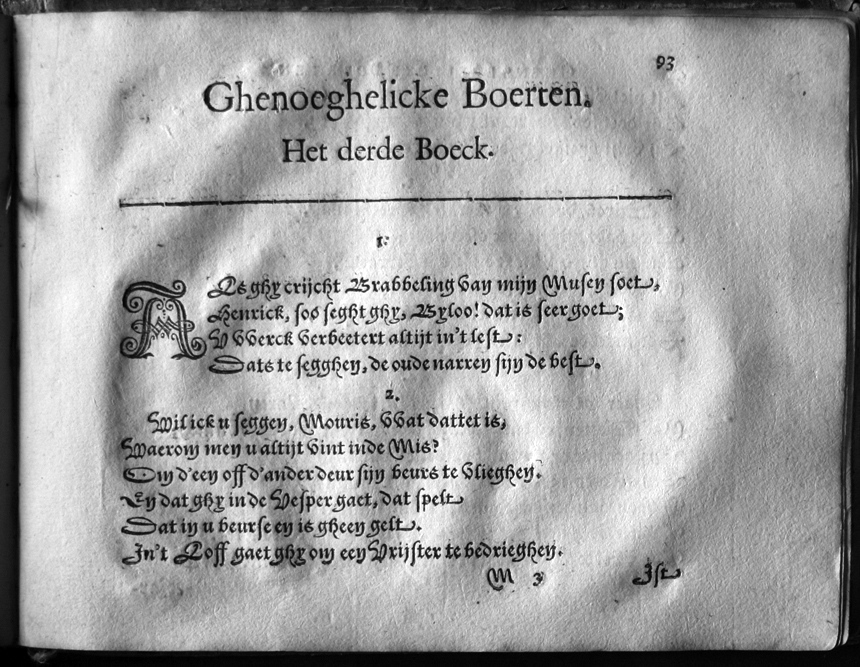 93
Ghenoeghelicke Boerten.
Het derde Boeck.
1.
Als ghy crijcht Brabbeling van mijn Musen soet,
Henrick, soo seght ghy, Byloo! dat is seer goet;
V VVerck verbeetert altijt in't lest:
Dats te segghen, de oude narren sijn de best.
2.
Wil ick u seggen, Mouris, VVat dattet is,
Waerom men u altijt vint inde Mis?
Om d'een off d'ander deur sijn beurs te vlieghen.
En dat ghy in de Vesper gaet, dat spelt
Dat in u beurse en is gheen gelt.
In't Loff gaet ghy om een Vrijster te bedrieghen.
M 3 Ist